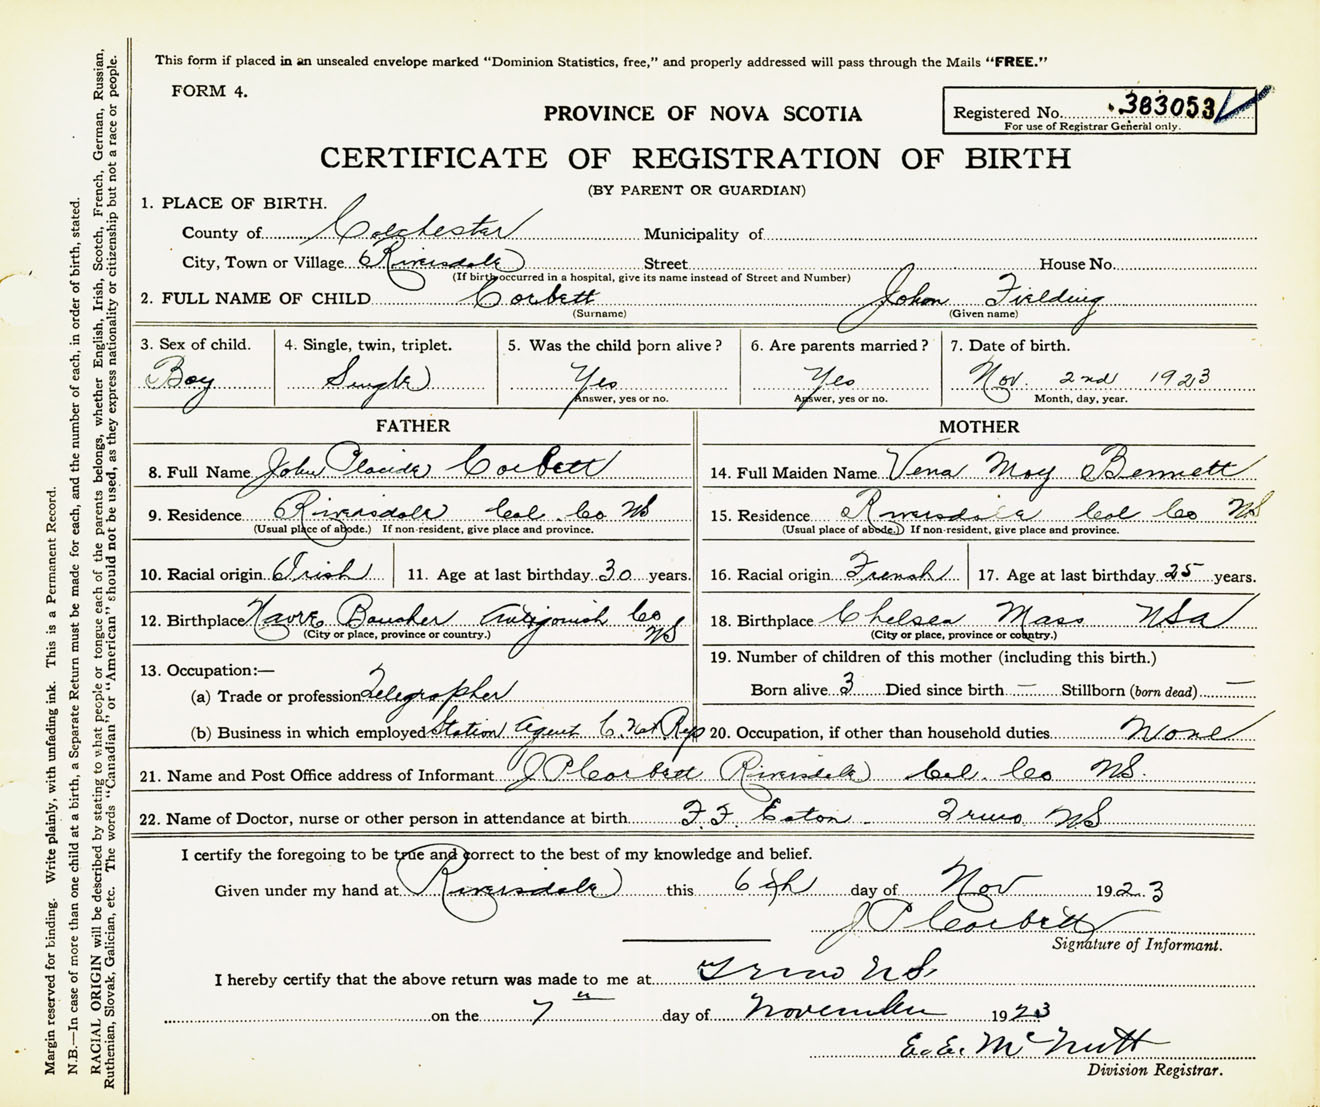 This form if placed in an unsealed envelope marked "Dominion Statistics, free," and properly addressed will pass through the Mails "FREE."
FORM 4.
PROVINCE OF NOVA SCOTIA
Registered No. 383053
For use of Registrar General only.
CERTIFICATE OF REGISTRATION OF BIRTH
(BY PARENT OR GUARDIAN)
1. PLACE OF BIRTH.
County of Colchester Municipality of
City, Town or Village Riversdale Street House No.
(If birth occurred in a hospital, give its name instead of Street and Number)
2. FULL NAME OF CHILD Corbett John Fielding
(Surname) (Given name)
3. Sex of child. 4. Single, twin, triplet. 5. Was the child born alive? 6. Are parents married? 7. Date of birth.
Boy Single Yes Yes Nov. 2nd 1923
Answer, yes or no. Answer, yes or no. Month, day, year.
FATHER MOTHER
8. Full Name John Placide Corbett
14. Full Maiden Name Vena May Bennett
9. Residence Riversdale Col. Co NS
(Usual place of abode.) If non-resident, give place and province.
15. Residence Riversdale Col Co NS
(Usual place of abode.) If non-resident, give place and province.
10. Racial origin Irish 11. Age at last birthday 30 years.
16. Racial origin French 17. Age at last birthday 25 years.
12. Birthplace Havre Boucher Antigonish Co
(City or place, province or country.) NS
18. Birthplace Chelsea Mass USA
(City or place, province or country.)
13. Occupation:—
(a) Trade or profession Telegrapher
(b) Business in which employed Station Agent C. Nat Rys
19. Number of children of this mother (including this birth.)
Born alive 3 Died since birth — Stillborn (born dead) —
20. Occupation, if other than household duties None
21. Name and Post Office address of Informant J P Corbett Riversdale Col. Co NS.
22. Name of Doctor, nurse or other person in attendance at birth F. F. Eaton. Truro NS
I certify the foregoing to be true and correct to the best of my knowledge and belief.
Given under my hand at Riversdale this 6th day of Nov 1923
J P Corbett
Signature of Informant.
I hereby certify that the above return was made to me at Truro N.S.
on the 7th day of November 1923
E. E. McNutt
Division Registrar.
Margin reserved for binding. Write plainly, with unfading ink. This is a Permanent Record.
N.B.—In case of more than one child at a birth, a Separate Return must be made for each, and the number of each, in order of birth, stated.
RACIAL ORIGIN will be described by stating to what people or tongue each of the parents belongs, whether English, Irish, Scotch, French, German, Russian,
Ruthenian, Slovak, Galician, etc. The words "Canadian" or "American" should not be used, as they express nationality or citizenship but not a race or people.